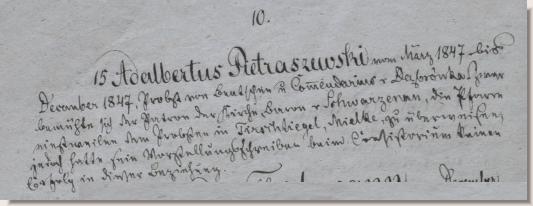 10.
15 Adalbertus Pietraszewski vom März 1847 bis
December 1847, Probst von Bratschen u Com̄endarius v Dąbrówka. Zwar
bemühte sich der Patron der Kirche Baron v Schwarzenau, die Pfarre
einstweilen dem Probsten in Tirschtiegel, Mielke, zu überweisen,
jedoch hatte sein Vorstellungsschreiben beim Consistorium keinen
Erfolg in dieser Beziehung.